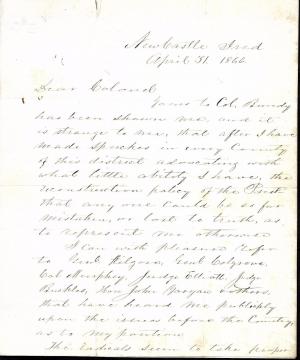 New Castle Ind
April 31. 1866
Dear Colonel
Yours to Col. Bundy
has been shown me, and it
is strange to me, that after I have
made speeches in every County
of this district advocating with
what little ability I have, the
reconstruction policy of the Prest
that any one could be so far
mistaken, or lost to truth, as
to represent me otherwise
I can with pleasure refer
to Genl Kilgore, Genl Colgrove,
Col Murphey, Judge Elliott, Judge
Buckles, Hon John Morgan & others,
that have heard me publicly
upon the issues before the Country
as to my position.
The radicals seem to take